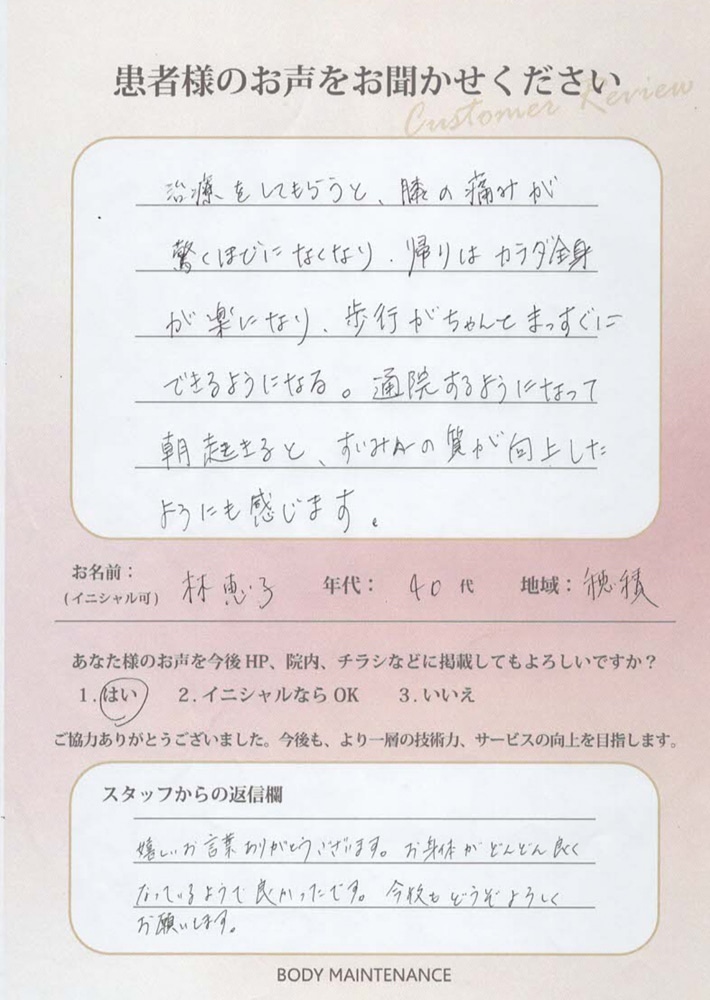 患者様のお声をお聞かせください
Customer Review
治療をしてもらうと、膝の痛みが
驚くほどになくなり、帰りはカラダ全身
が楽になり、歩行がちゃんとまっすぐに
できるようになる。通院するようになって
朝起きると、すいみんの質が向上した
ようにも感じます。
お名前: 林恵子 年代: 40代 地域: 穂積
(イニシャル可)
あなた様のお声を今後HP、院内、チラシなどに掲載してもよろしいですか？
1.はい 2.イニシャルならOK 3.いいえ
ご協力ありがとうございました。今後も、より一層の技術力、サービスの向上を目指します。
スタッフからの返信欄
嬉しいお言葉ありがとうございます。お身体がどんどん良く
なっているようで良かったです。今後もどうぞよろしく
お願いします。
BODY MAINTENANCE